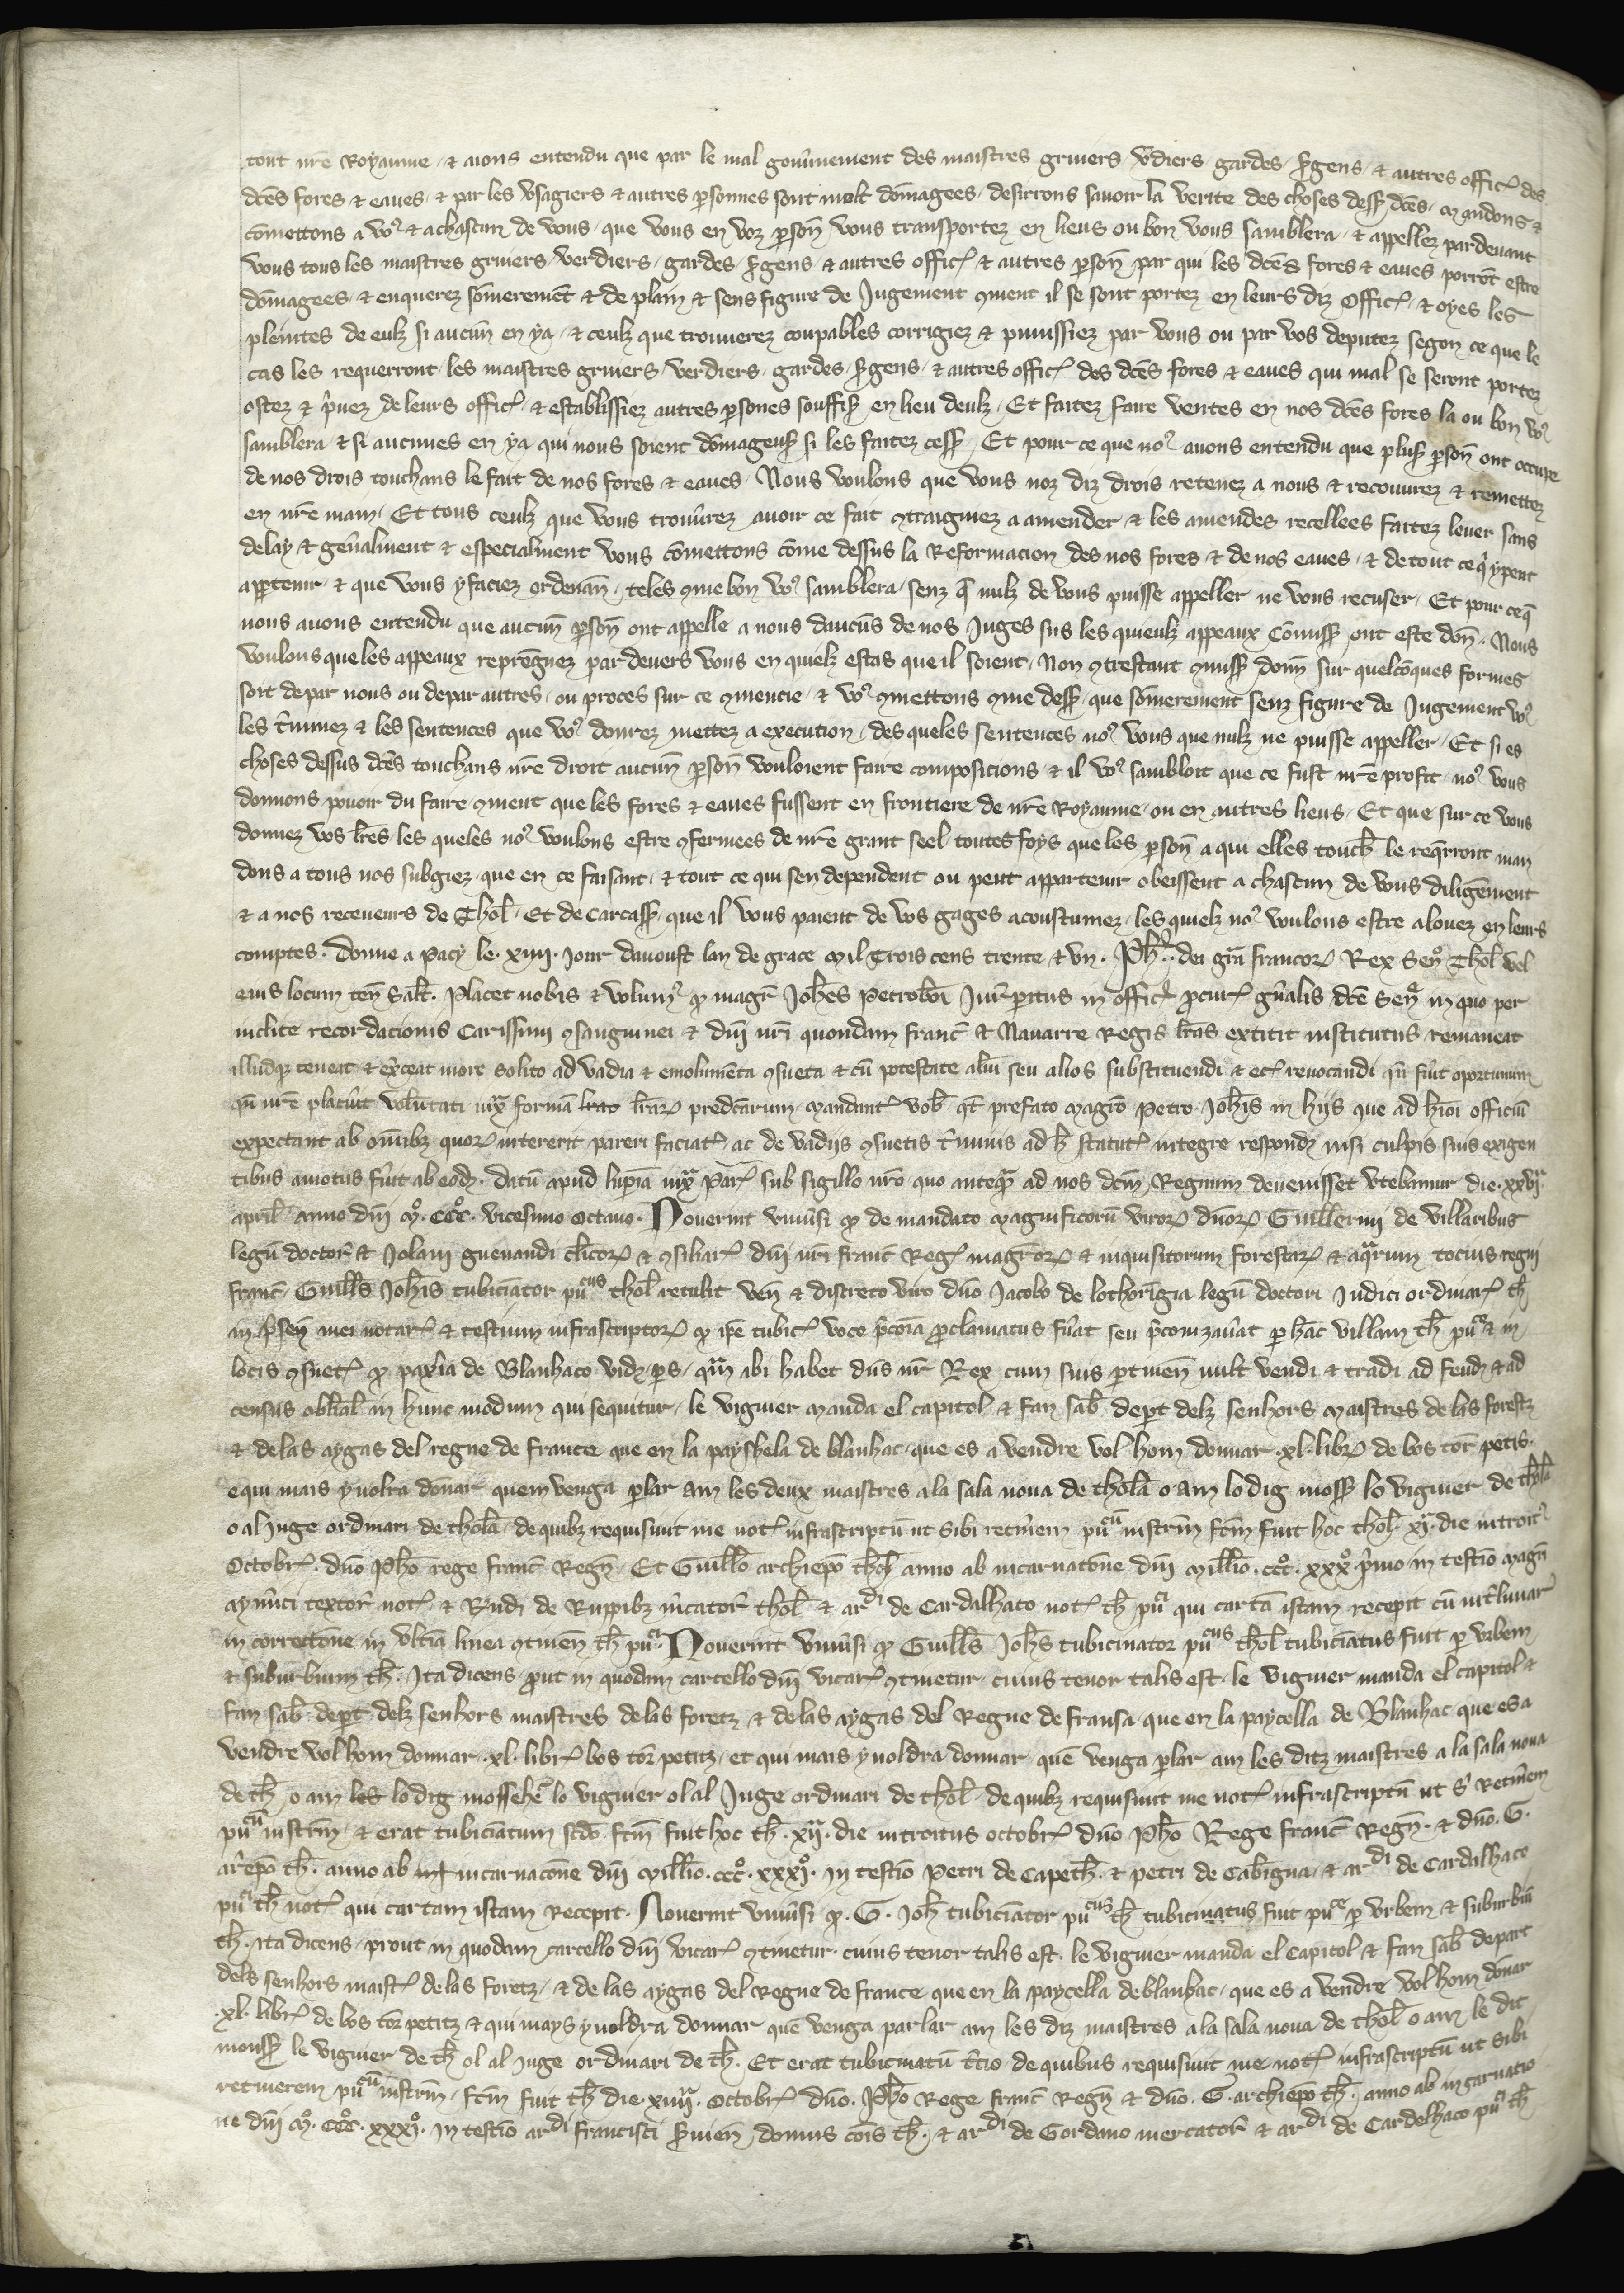 tout nr̃e Royaume et auons entendu que par le mal gouũnement des maistres gruiers v̾diers gardes s̾gens et autres offic̾ des
dc̃es fores et eaues et par les vsagiers et autres p̱sonnes sont molt dõmagees desirrons sauoir la verite des choses dess̾ dc̃es mandons et
cõmettons a voꝰ et a chascun de vous que vous en voz p̱soñ vous transportez en lieus ou bon vous samblera et appellez pardeuant
vous tous les maistres gruiers verdiers gardes s̾gens et autres offic̾ et autres p̱soñ par qui les dc̃es fores et eaues porrõt estre
dõmagees et enquerez sõmeremẽt et de plain et sens figure de Jugement ꝯment il se sont portez en leurs diz offic̾ et oyes les
pleintes de eulz si aucun en ya et ceulz que trouuerez coupables corrigiez et punissiez par vous ou par vos deputez segon ce que le
cas les requerront les maistres gruiers verdiers gardes s̾gens et autres offic̾ des dc̃es fores et eaues qui mal se seront portez
ostez et p̾uez de leurs offic̾ et establissiez autres p̱sones souffis̾ en lieu deulz Et faitez faire ventes en nos dc̃es fores la ou bon voꝰ
samblera et si aucunes en ya qui nous soient dõmageus̾ si les faitez cess̾ Et pour ce que noꝰ auons entendu que plus̾ p̱soñ ont occupe
de nos drois touchans le fait de nos fores et eaues Nous voulons que vous noz diz drois retenez a nous et recouurez et remettez
en nr̃e main Et tous ceulz que vous trouũrez auoir ce fait ꝯtraigniez a amender et les amendes recellees faitez leuer sans
delay et geñalment et especialment vous cõmettons cõme dessus la Reformacion des nos fores et de nos eaues et de tout ce q̾ y peut
app̱tenir et que vous y faciez ordenañ teles ꝯme bon voꝰ samblera senz q̃ nulz de vous puisse appeller ne vous recuser Et pour ce q̃
nous auons entendu que aucuñ p̱soñ ont appelle a nous daucũs de nos Juges sus les quieulz appeaux Cõmiss̾ ont este doñ Nous
voulons que les appeaux reprẽgnez pardeuers vous en quielz estas que il soient Non ꝯtrestant ꝯmiss̾ donñ sur quelcõques formes
soit depar nous ou depar autres ou proces sur ce ꝯmencie et voꝰ ꝯmettons ꝯme dess̾ que sõmerement senz figure de Jugement voꝰ
les t̾minez et les sentences que voꝰ donrez mettez a execution des queles sentences noꝰ vous que nulz ne puisse appeller Et si es
choses dessus dc̃es touchans nr̃e droit aucuñ p̱soñ vouloient faire composicions et il voꝰ sambloit que ce fust nr̃e profit noꝰ vous
donnons pouoir du faire ꝯment que les fores et eaues fussent en frontiere de nr̃e Royaume ou en autres lieus Et que sur ce vous
donnez vos lr̃es les queles noꝰ voulons estre ꝯfermees de nr̃e grant seel toutes foys que les p̱soñ a qui elles touch̃ le reqr̃ront man
dons a tous nos subgiez que en ce faisant et tout ce qui sen dependent ou peut appartenir obeissent a chascun de vous diligẽment
et a nos receueurs de Thol̃ Et de Carcass̾ que il vous paient de vos gages acoustumez les quielz noꝰ voulons estre alouez en leurs
comptes. Donne a Pacy le xiiii Jour dauoust lan de grace mil Trois cens trente et vn. Ph̃s dei gr̃a francoꝝ Rex Señ Thol̃ vel
eius locum teñ Salt̃. Placet nobis et volumꝰ ꝙ magr̃ Joh̃es Petroboi Jur̃ p̱itus in offic̾ p̱cur̾ gñalis dc̃e Señ in quo per
inclite recordacionis Carissimi ꝯsanguinei et dñi nr̃i quondam franc̃ et Nauarre Regis lr̃as extitit institutus remaneat
illudqꝫ teneat et ex̾ceat more solito ad vadia et emolumẽta ꝯsueta et cũ potestate aliũ seu alios substituendi et ec̾ reuocandi qñ fũit oportunum
qñ nr̃e placũit volũtati iux̃ formã lr̃aꝝ predc̃arum mandantꝭ vob̃ qt̾ prefato magr̃o Petro Joh̃is in hijs que ad hm̃oi officiũ
expectant ab om̃ibꝫ quoꝝ intererit pareri faciatꝭ ac de vadijs ꝯsuetis t̾minis ad h̾ statutꝭ integre respondꝫ nisi culpis suis exigen
tibus amotus fũit ab eodꝫ. Datũ apud lup̱iã iux̃ Par̾ sub sigillo nr̃o quo anteqᷓ ad nos dc̃m Regnum deuenisset vtebamur die xxvjᷓ
april̃ anno dñi mº. CCCº. vicesimo octauo. Nouerint vniũsi ꝙ de mandato magnificorũ viroꝝ dñoꝝ Guillermi de villaribus
legũ doctor̃ et Jolani guenandi cl̃icoꝝ et ꝯsiliar̾ dñi nr̃i franc̃ Reg̾ magr̃oꝝ et inquisitorum forestaꝝ et aqᷓrum tocius regni
franc̃ Guill̃s Joh̃is tubiciãtor pũcus thol̃ retulit veñ et discreto viro dño Jacobo de lothorĩgia legũ doctori Judici ordinar̾ th̃
in p̾señ mei notar̾ et testium infrascriptoꝝ ꝙ ip̃e tubic̾ voce p̾conia p̱clamatus fũat seu p̾conizaũat p̱ hãc villam th̃ pũce in
locis ꝯsuet̾ ꝙ paxia de Blanhaco vidꝫ p̱s qᷓm ibi habet dñs nr̃ Rex cum suis p̱tineñ uult vendi et tradi ad feudꝫ et ad
census obl̃ial̃ in hunc modum qui sequitur le viguier manda el capitol et fan sab̃ dep̱t delz senhors maistres de las forestz
et de las aygas del regne de france que en la payshela de blanhac que es a vendre vol hom donnar .xl. libꝝ de bos tor̃ petis.
e qui mais y volra dõnar quem venga p̱lar am les deux maistres a la sala noua de tholã o am lo dig moss̾ lo viguier de thol̃a
o al Juge ordinari de tholã de quibꝫ requisiuit me not̾ infrascriptũ ut sibi retin̾em pũcũ instrm̃ fc̃m fuit hoc thol̃ xj die introitꝰ
Octobr̾ dño Ph̃o rege franc̃ Regñ Et Guill̃o archiep̃o thol̃ anno ab incarnatõne dñi mill̃io ccc̊ xxx̊ p̾mo in testĩo magr̃i
aym̃ici textor̃ not̾ et Rñdi de Ruppibꝫ m̾cator̃ thol̃ et ardi de Cardalhaco not̾ th̃ pũci qui cartã istam recepit cũ int̾liniar̃
in correctõne in vltĩa linea ꝯtineñ th̃ pũci. Nouerint vniũsi ꝙ Guill̃s Joh̃s tubicinator pũcus thol̃ tubiciãtus fuit p̱ vrbem
et suburbium th̃. Ita dicens p̱ut in quodam cartello dñi vicar̾ ꝯtinetur cuius tenor talis est le viguier manda el capitol et
fan sab̃ dep̱t delz senhors maistres de las foretz et de las aygas del Regne de fransa que en la paycella de Blanhac que es a
vendre vol hom donnar .xl. libr̾ bos tor̃ petitz et qui mais y voldra donnar quẽ venga p̱lar am les ditz maistres a la sala noua
de th̃ o am les lo dig mossehẽ lo viguier ol al Juge ordinari de thol̃ de quibꝫ requisiuit me not̾ infrascriptũ ut s̾ Retin̾em
pũcũ instrm̃ et erat tubiciãtum scdõ fc̃m fuit hoc th̃ .xij. die introitus octobr̾ dño Ph̃o Rege franc̃ Regñ et dño. G.
ar̾ep̃o th̃. anno ab int incarnacõne dñi mill̃io ccc̊ xxxj̊. in testĩo Petri de Capeth̃. et petri de Cabĩgua et ardi de Cardalhaco
pũci th̃ not̾ qui cartam istam Recepit. Nouerint vniũsi ꝙ. G. Joh̃ tubiciãtor pũcus th̃ tubicinatus fuit pũce p̱ vrbem et suburbiũ
th̃. ita dicens prout in quodam cartello dñi vicar̾ ꝯtinetur cuius tenor talis est. le viguier manda el Capitol et fan sab̃ depart
dels senhors maist̾ de las foretz et de las aygas del Regne de france que en la paycella de blanhac que es a vendre vol hom dõnar
.xl. libr̾ de bos tor̃ petitz et qui mays y voldra donnar quẽ venga parlar am les diz maistres a la sala noua de thol̃ o am le dit
monss̾ le viguier de th̃ ol al Juge ordinari de th̃. Et erat tubicinatũ t̾cio de quibus requisiuit me not̾ infrascriptũ ut sibi
retinerem pũcũ instrm̃ fc̃m fuit th̃ die xiiijᷓ. Octobr̾ dño. Ph̃o Rege franc̃ Regñ et dño. G. archiep̃o th̃. anno ab incarnatio
ne dñi mº. CCCº. xxxjº. in testĩo ardi francisci s̾uieñ domus cõis th̃. et ardi de Gordano mercator̃ et ardi de Cardelhaco pũci th̃